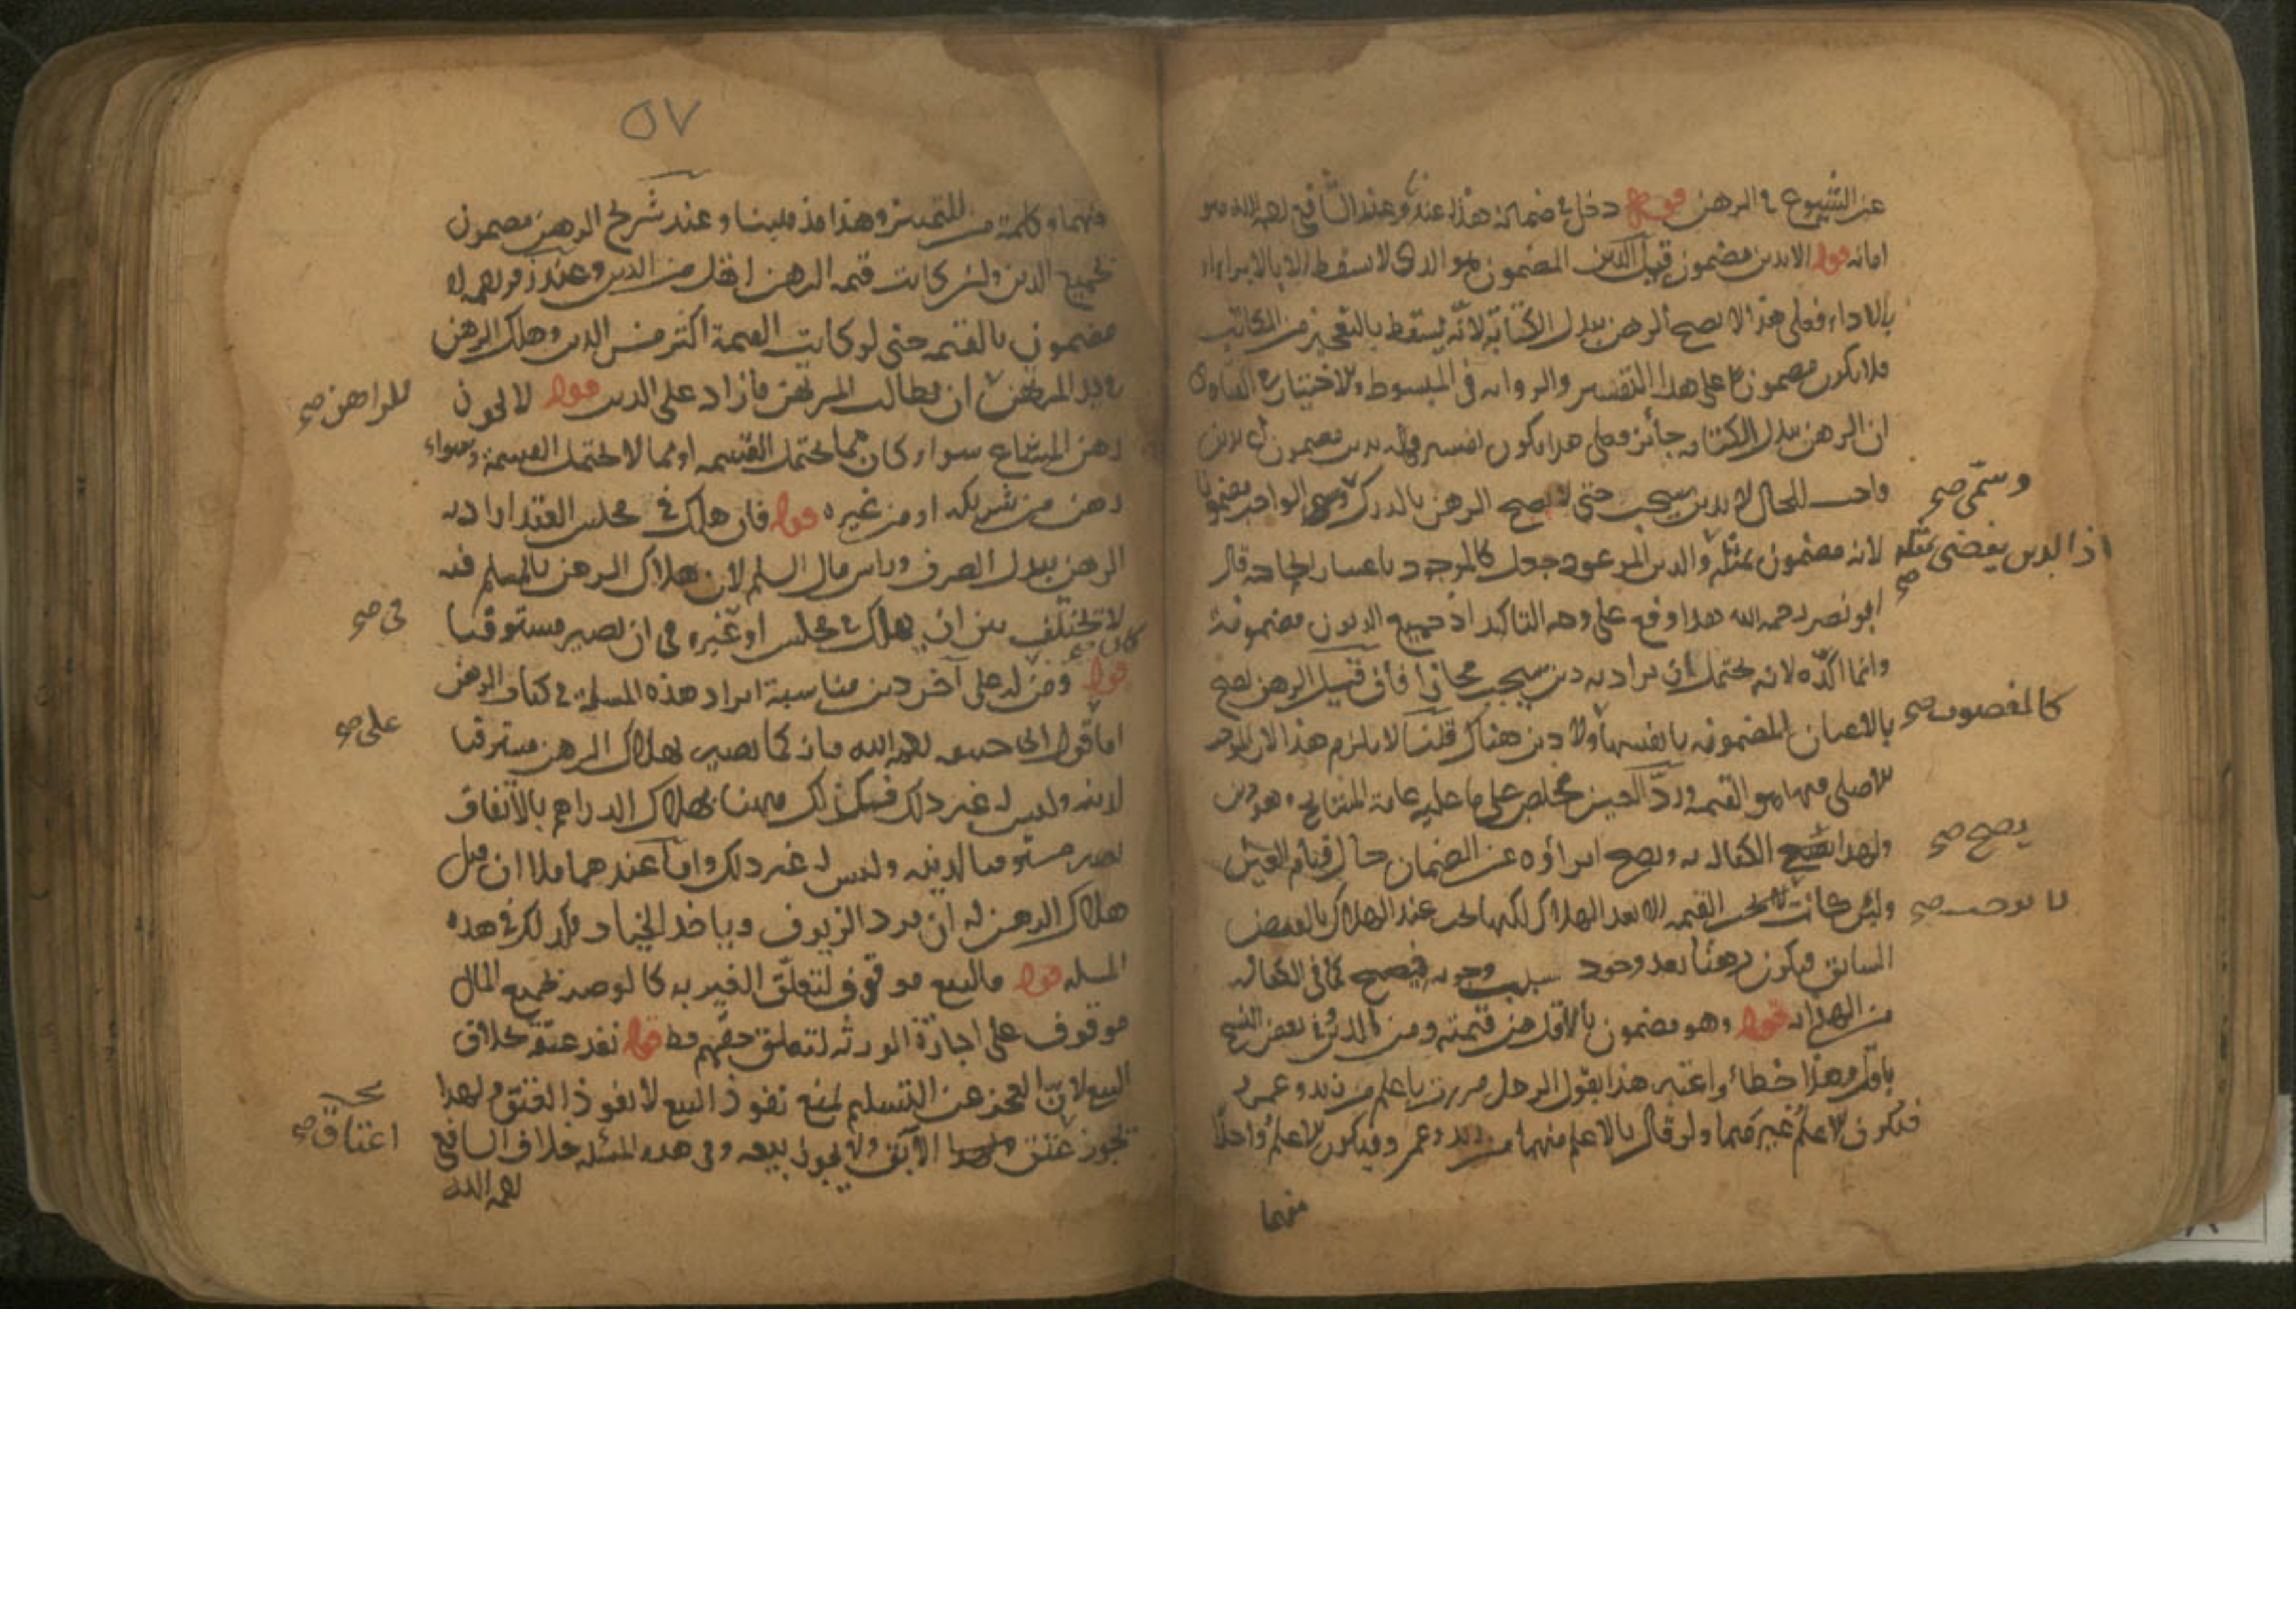 عن الشيوع في الرهن قوله دخل في ضمانه هذا عندنا وعند الشافعي رحمه الله هو
امانة قوله الا بدين مضمون قيل الدين المضمون هو الذي لا يسقط الا بالابراء او
بالاداء فعلى هذا لا يصح الرهن ببدل الكتابة لانه يسقط بالتعجيز من المكاتب
فلا يكون مضمونا على هذا التفسير والرواية في المبسوط ولاختيارع
ان الرهن ببدل الكتابة جائز فعلى هذا يكون تفسير قوله بدين مضمون اي بدين
واجب للحال لا بدين سيجب حتى لا يصح الرهن بالدرك وسمي الواجب مضمونا
وسمّى صح
لانه مضمون بمثله والدين الموعود جعل كالموجود باعتبار الحاجة قال
اذ الدين يقضى بمثله صح
ابو نصر رحمه الله هذا وقع على وجه التاكيد اذ جميع الديون مضمونة
وانما اكّده لانه يحتمل ان يراد به دين سيجب مجازا فان قيل الرهن يصح
بالاعيان المضمونة بانفسها ولا دين هناك قلنا لا يلزم هذا لان الموجب
كالمغصوب صح
الاصلي فيها هو القيمة وردّ العين مخلص على ما عليه عامة المشايخ وهو دين
ولهذا الكفالة به ويصح ابراؤه عن الضمان حال قيام العين
يصح صح
ولئن كانت القيمة الا بعد الهلاك لكنها تجب عند الهلاك بالقبض
لا توجب صح
السابق فيكون رهنا بعد وجود سبب وجوبه فيصح كما في الكفالة
من الهداية قوله وهو مضمون بالاقل من قيمته ومن الدين وفي بعض النسخ
باقل وهذا خطاء واعتبر هذا بقول الرجل مررت باعلم من زيد وعمرو
فيكون الاعلم غيرهما ولو قال بالاعلم منهما من زيد وعمرو فيكون الاعلم واحدا
منهما
٥٧
منهما وكلمة من للتمييز وهذا مذهبنا وعند شريح الرهن مضمون
بجميع الدين ولئن كانت قيمة الرهن اقل من الدين وعند زفر رحمه الله
مضمون بالقيمة حتى لو كانت القيمة اكثر من الدين وهلك الرهن
في يد المرتهن ان يطالب المرتهن ما زاد على الدين قوله لا يجوز
للراهن صح
رهن المشاع سواء كان مما يحتمل القسمة او مما لا يحتمل القسمة وسواء
رهن من شريكه او من غيره قوله فان هلك في مجلس العقد اراد به
الرهن ببدل الصرف وراس مال السلم لان هلاك الرهن بالمسلم فيه
لا تختلف بين ان يهلك في مجلس او غيره في ان يصير مستوفيا
في صح
قوله ومن له على آخر دين مناسبة ايراد هذه المسئلة في كتاب الرهن
اما قول ابي حنيفة رحمه الله فانه كما يصير بهلاك الرهن مستوفيا
على صح
لدينه وليس له غير ذلك فكذلك ههنا بهلاك الدراهم بالاتفاق
يصير مستوفيا لدينه وليس له غير ذلك واما عندهما فلا ان قبل
هلاك الرهن له ان يرد الزيوف وياخذ الجياد فكذلك في هذه
المسئلة قوله فالبيع موقوف لتعلّق الغير به كما لو وصى بجميع المال
موقوف على اجازة الورثة لتعلق حقهم قوله نفذ عتقه بخلاف
البيع لان العجز عن التسليم يمنع نفوذ البيع لا نفوذ العتق ولهذا
يجوز عتق الآبق ولا يجوز بيعه وفي هذه المسئلة خلاف الشافعي
اعتاق صح
رحمه الله